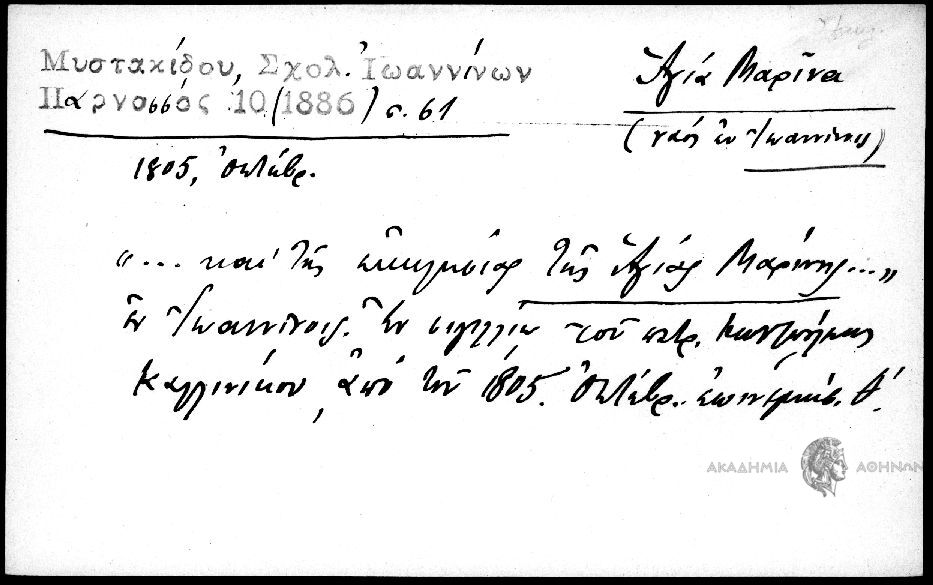 Μυστακίδου, Σχολ. Ἰωαννίνων
Παρνασσός 10 (1886) σ. 61
Ἁγία Μαρῖνα
(ναός ἐν Ἰωαννίνοις)
1805, Ὀκτώβρ.
"... καί τῆς ἐκκλησίας τῆς Ἁγίας Μαρίνης ..."
ἐν Ἰωαννίνοις. Ἐν σιγιλλίῳ τοῦ πατρ. Κων/πόλεως
Καλλινίκου, ἀπό τοῦ 1805. Ὀκτώβρ. ἐπινεμήσ. Θ΄.
ΑΚΑΔΗΜΙΑ ΑΘΗΝΩΝ